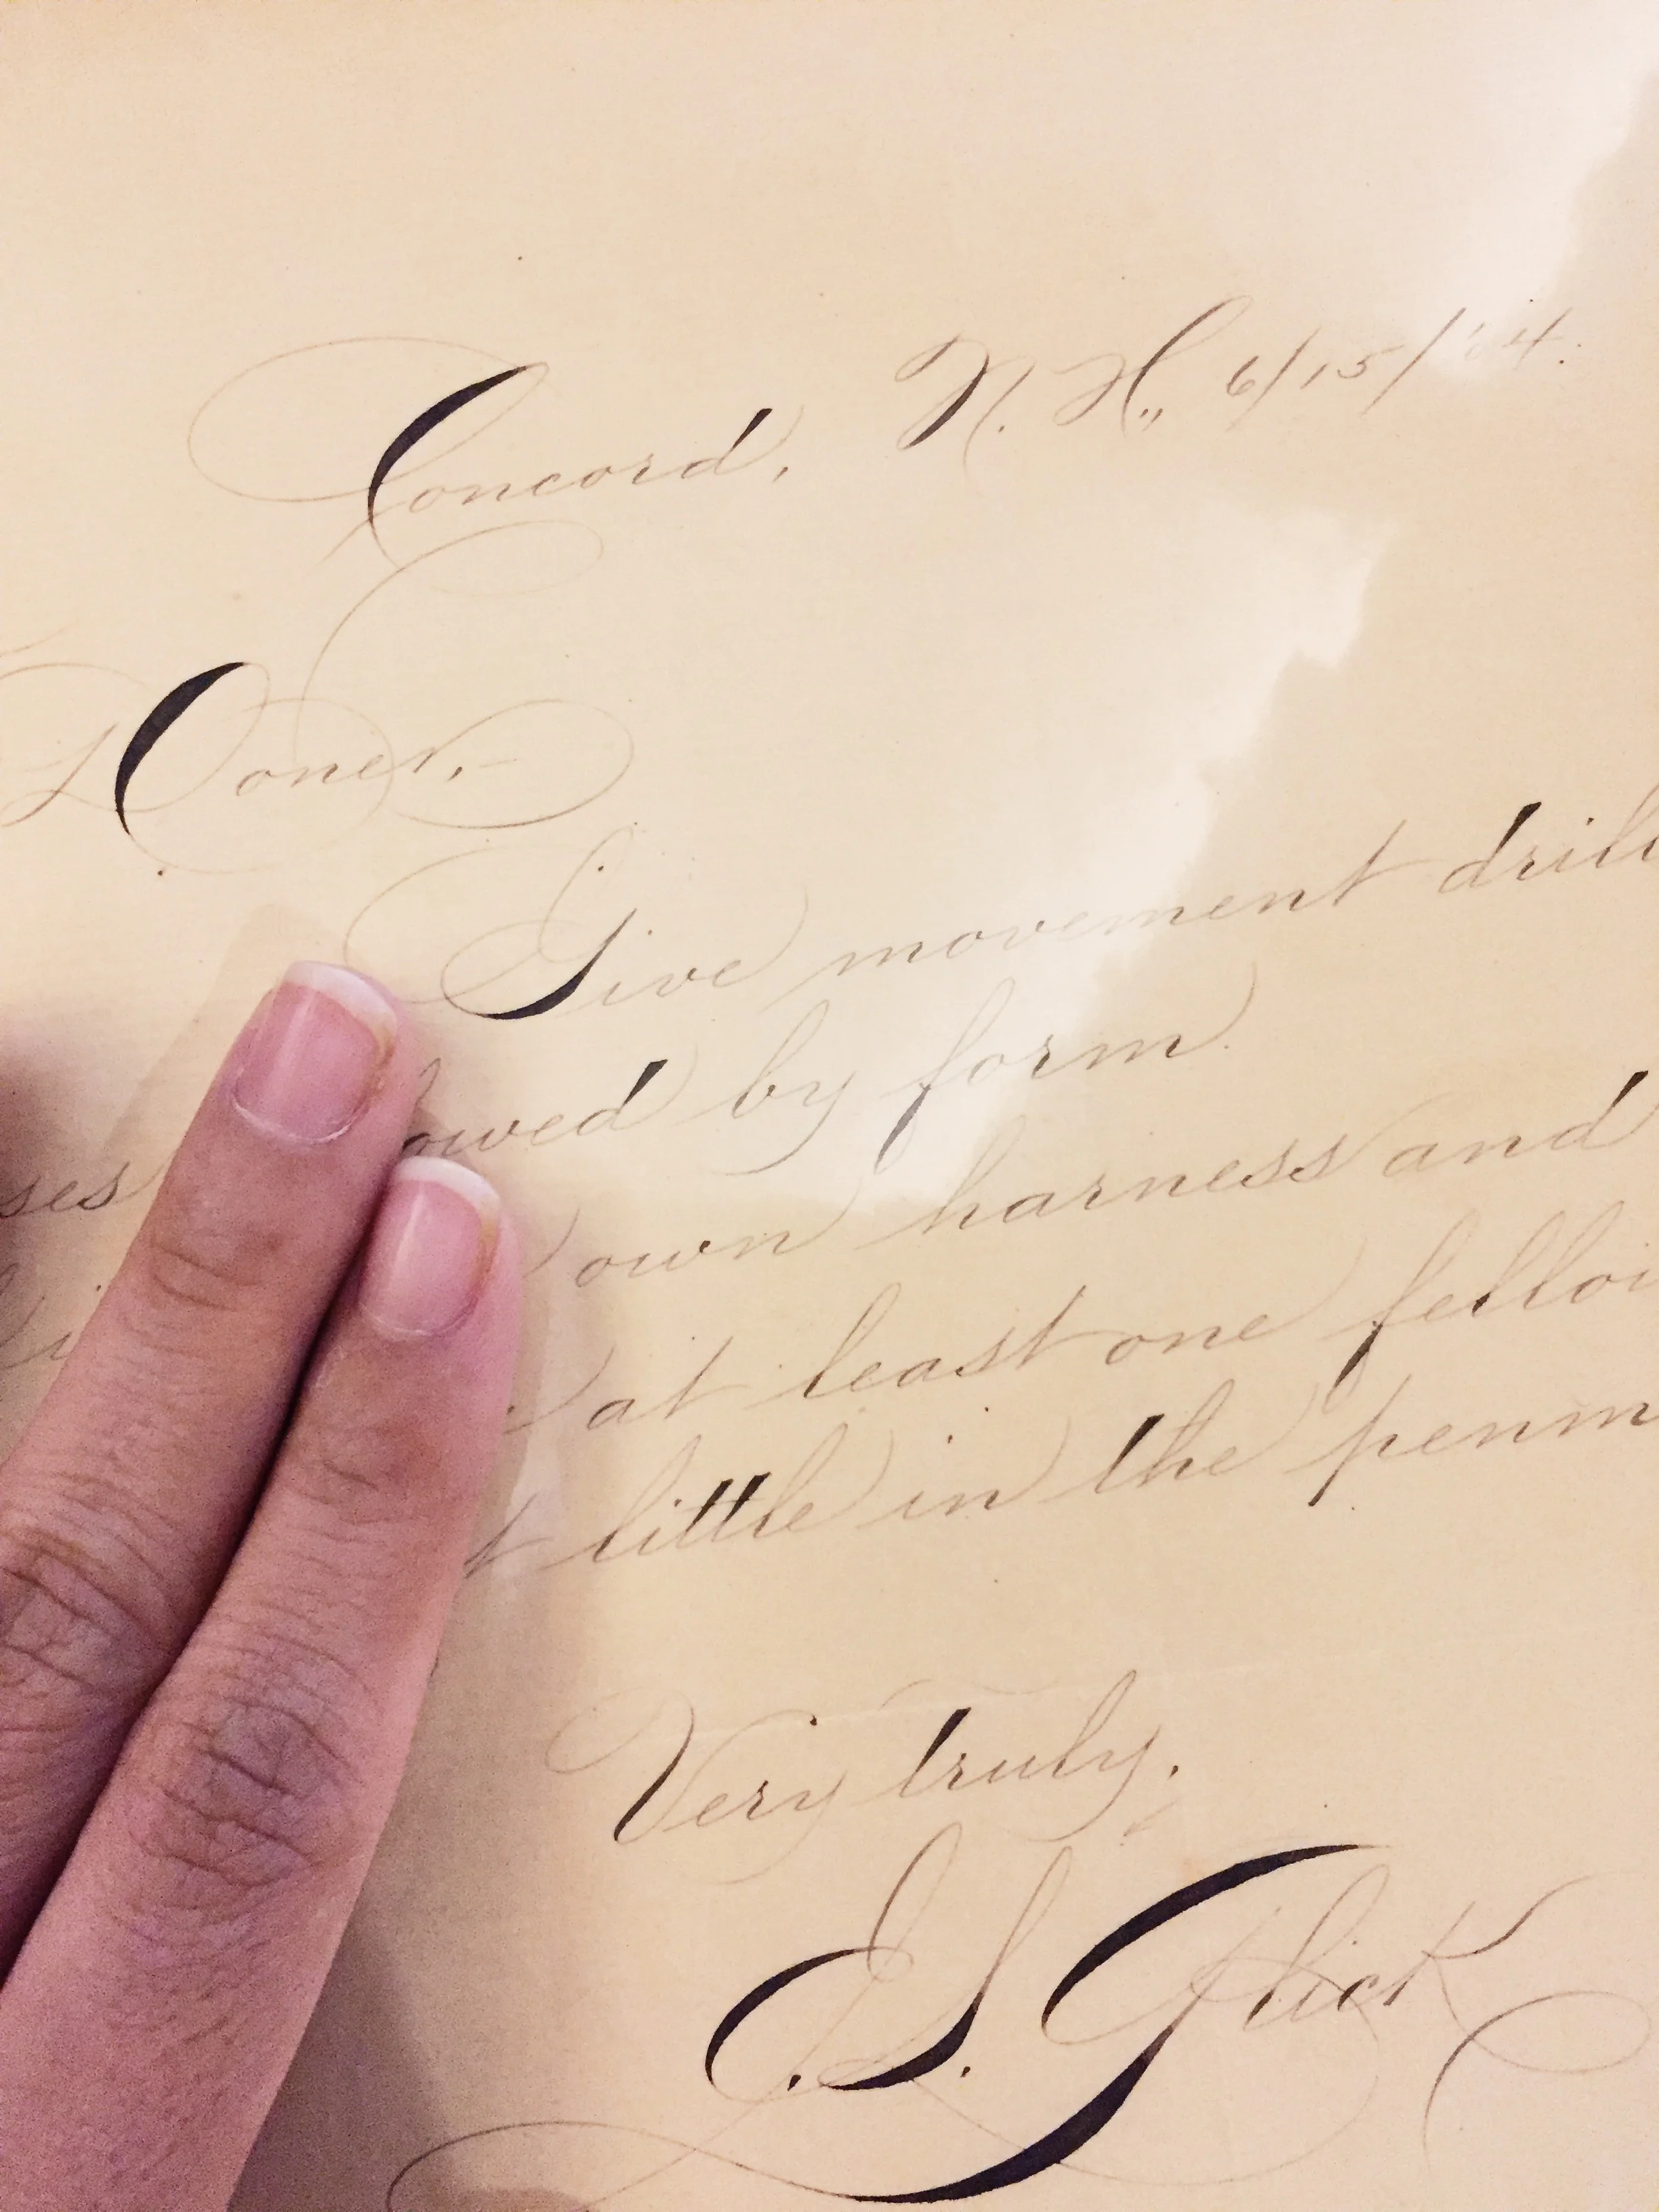 Concord, N. H., 6/15/'04.
Doner,-
Give movement drill
ses owed by form.
own harness and
at least one fellow
little in the penm
Very truly,
E. S. Glick